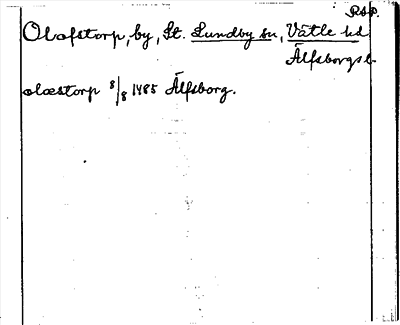 RSP.
Olofstorp, by, St. Lundby sn, Vätle hd
Älfsborgs l.
olæstorp 8/8 1485 Älfsborg.